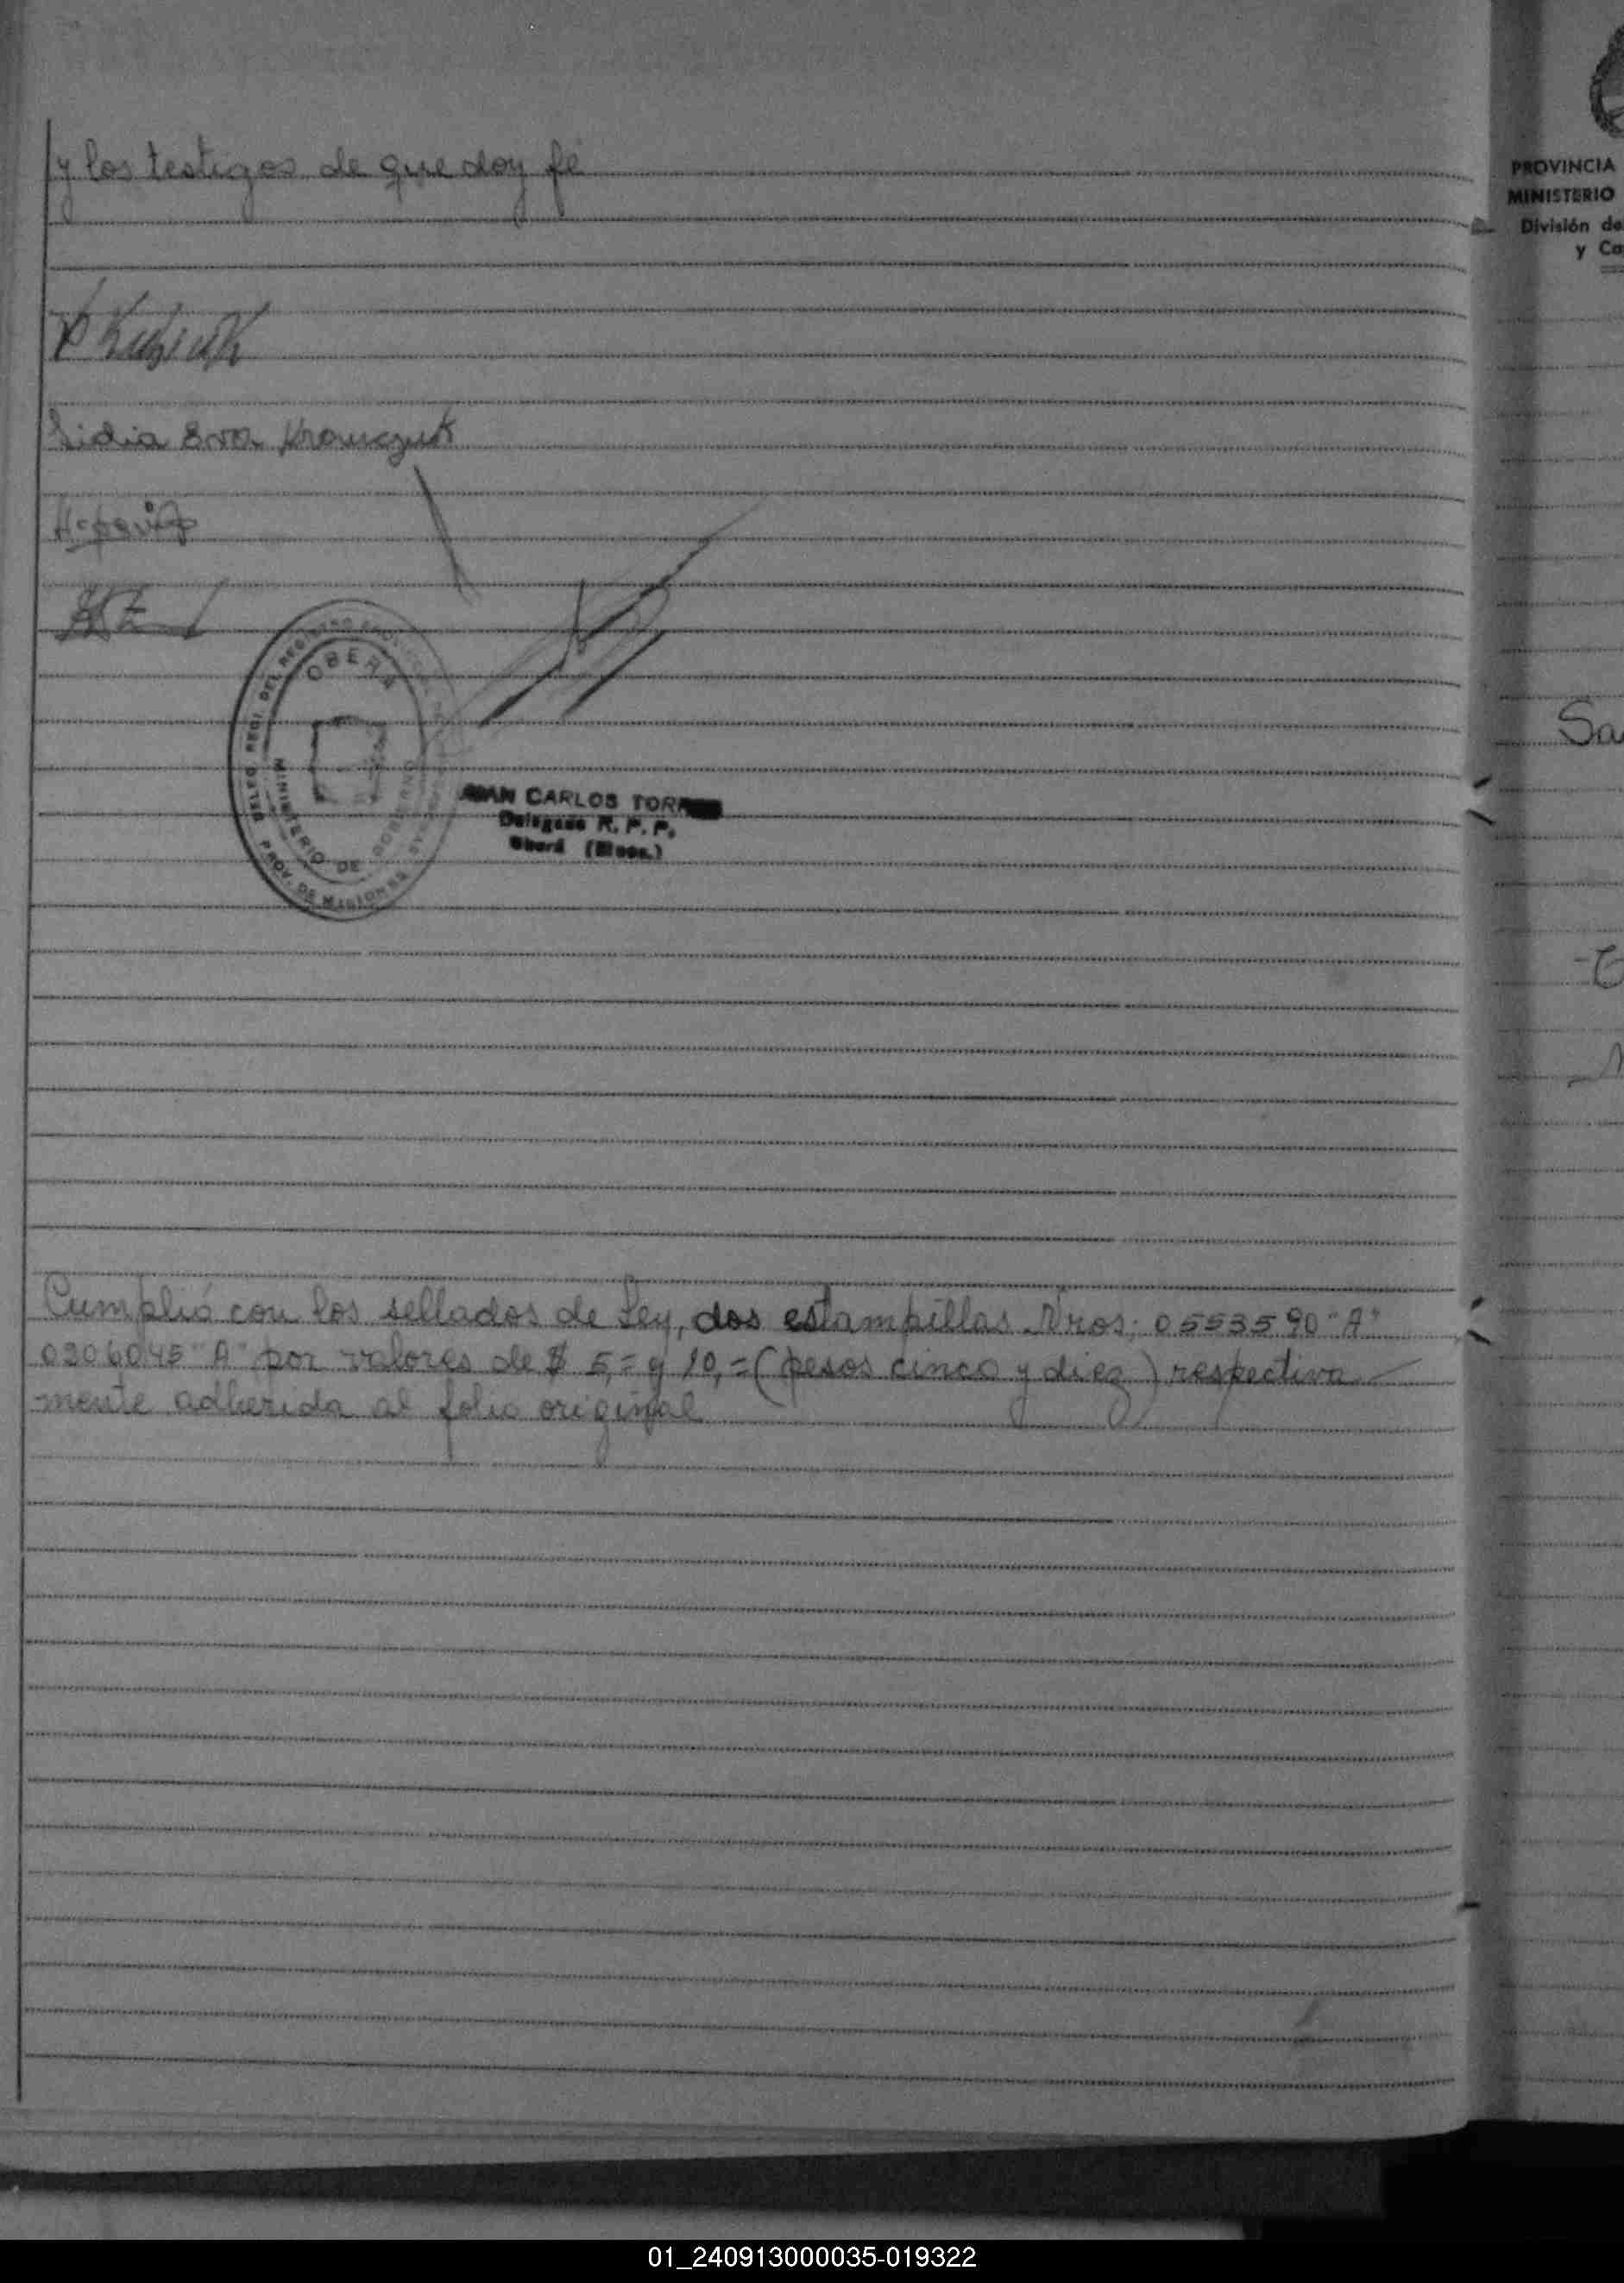 y los testigos de que doy fé
Lidia Eva Krawczuk
OBERA
MINISTERIO DE GOBIERNO
PROV. DE MISIONES
JUAN CARLOS TORRES
Delegado R. P. P.
Oberá (Mnes.)
Cumplió con los sellados de Ley, dos estampillas Nros: 0553590 "A"
0906045 "A" por valores de $ 5,= y 10,= (pesos cinco y diez) respectiva
mente adherida al folio original
PROVINCIA
MINISTERIO
División de
y Ca
Sa
01_240913000035-019322